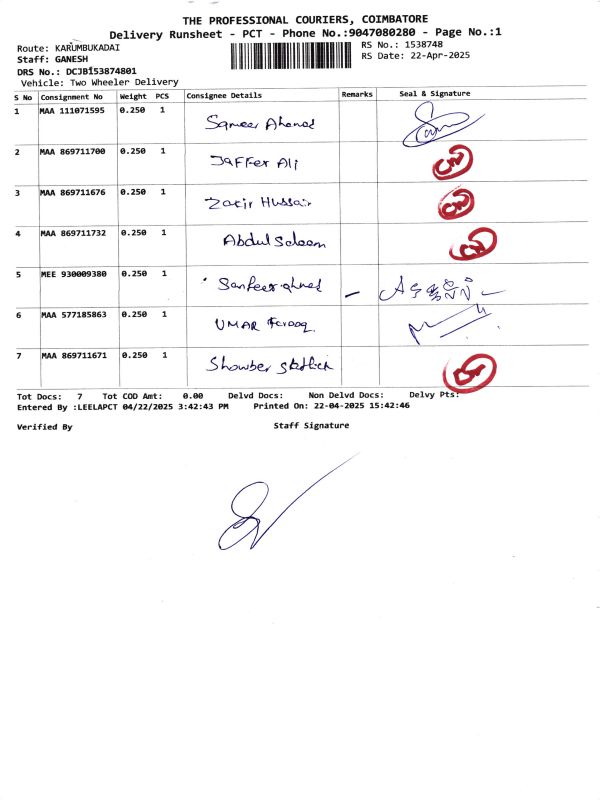 THE PROFESSIONAL COURIERS, COIMBATORE
Delivery Runsheet - PCT - Phone No.:9047080280 - Page No.:1
Route: KARUMBUKADAI
RS No.: 1538748
Staff: GANESH
RS Date: 22-Apr-2025
DRS No.: DCJB153874801
Vehicle: Two Wheeler Delivery
S No Consignment No Weight PCS Consignee Details Remarks Seal & Signature
1 MAA 111071595 0.250 1 Sameer Ahamed
2 MAA 869711700 0.250 1 Jaffer Ali
3 MAA 869711676 0.250 1 Zakir Hussain
4 MAA 869711732 0.250 1 Abdul Saleem
5 MEE 930009380 0.250 1 ahmed
6 MAA 577185863 0.250 1 UMAR Farooq.
7 MAA 869711671 0.250 1
Tot Docs: 7 Tot COD Amt: 0.00 Delvd Docs: Non Delvd Docs: Delvy Pts:
Entered By :LEELAPCT 04/22/2025 3:42:43 PM Printed On: 22-04-2025 15:42:46
Verified By Staff Signature